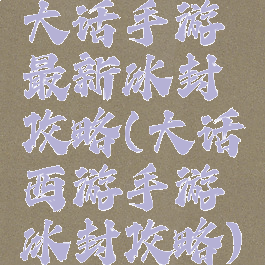 大话手游
最新冰封
攻略(大话
西游手游
冰封攻略)